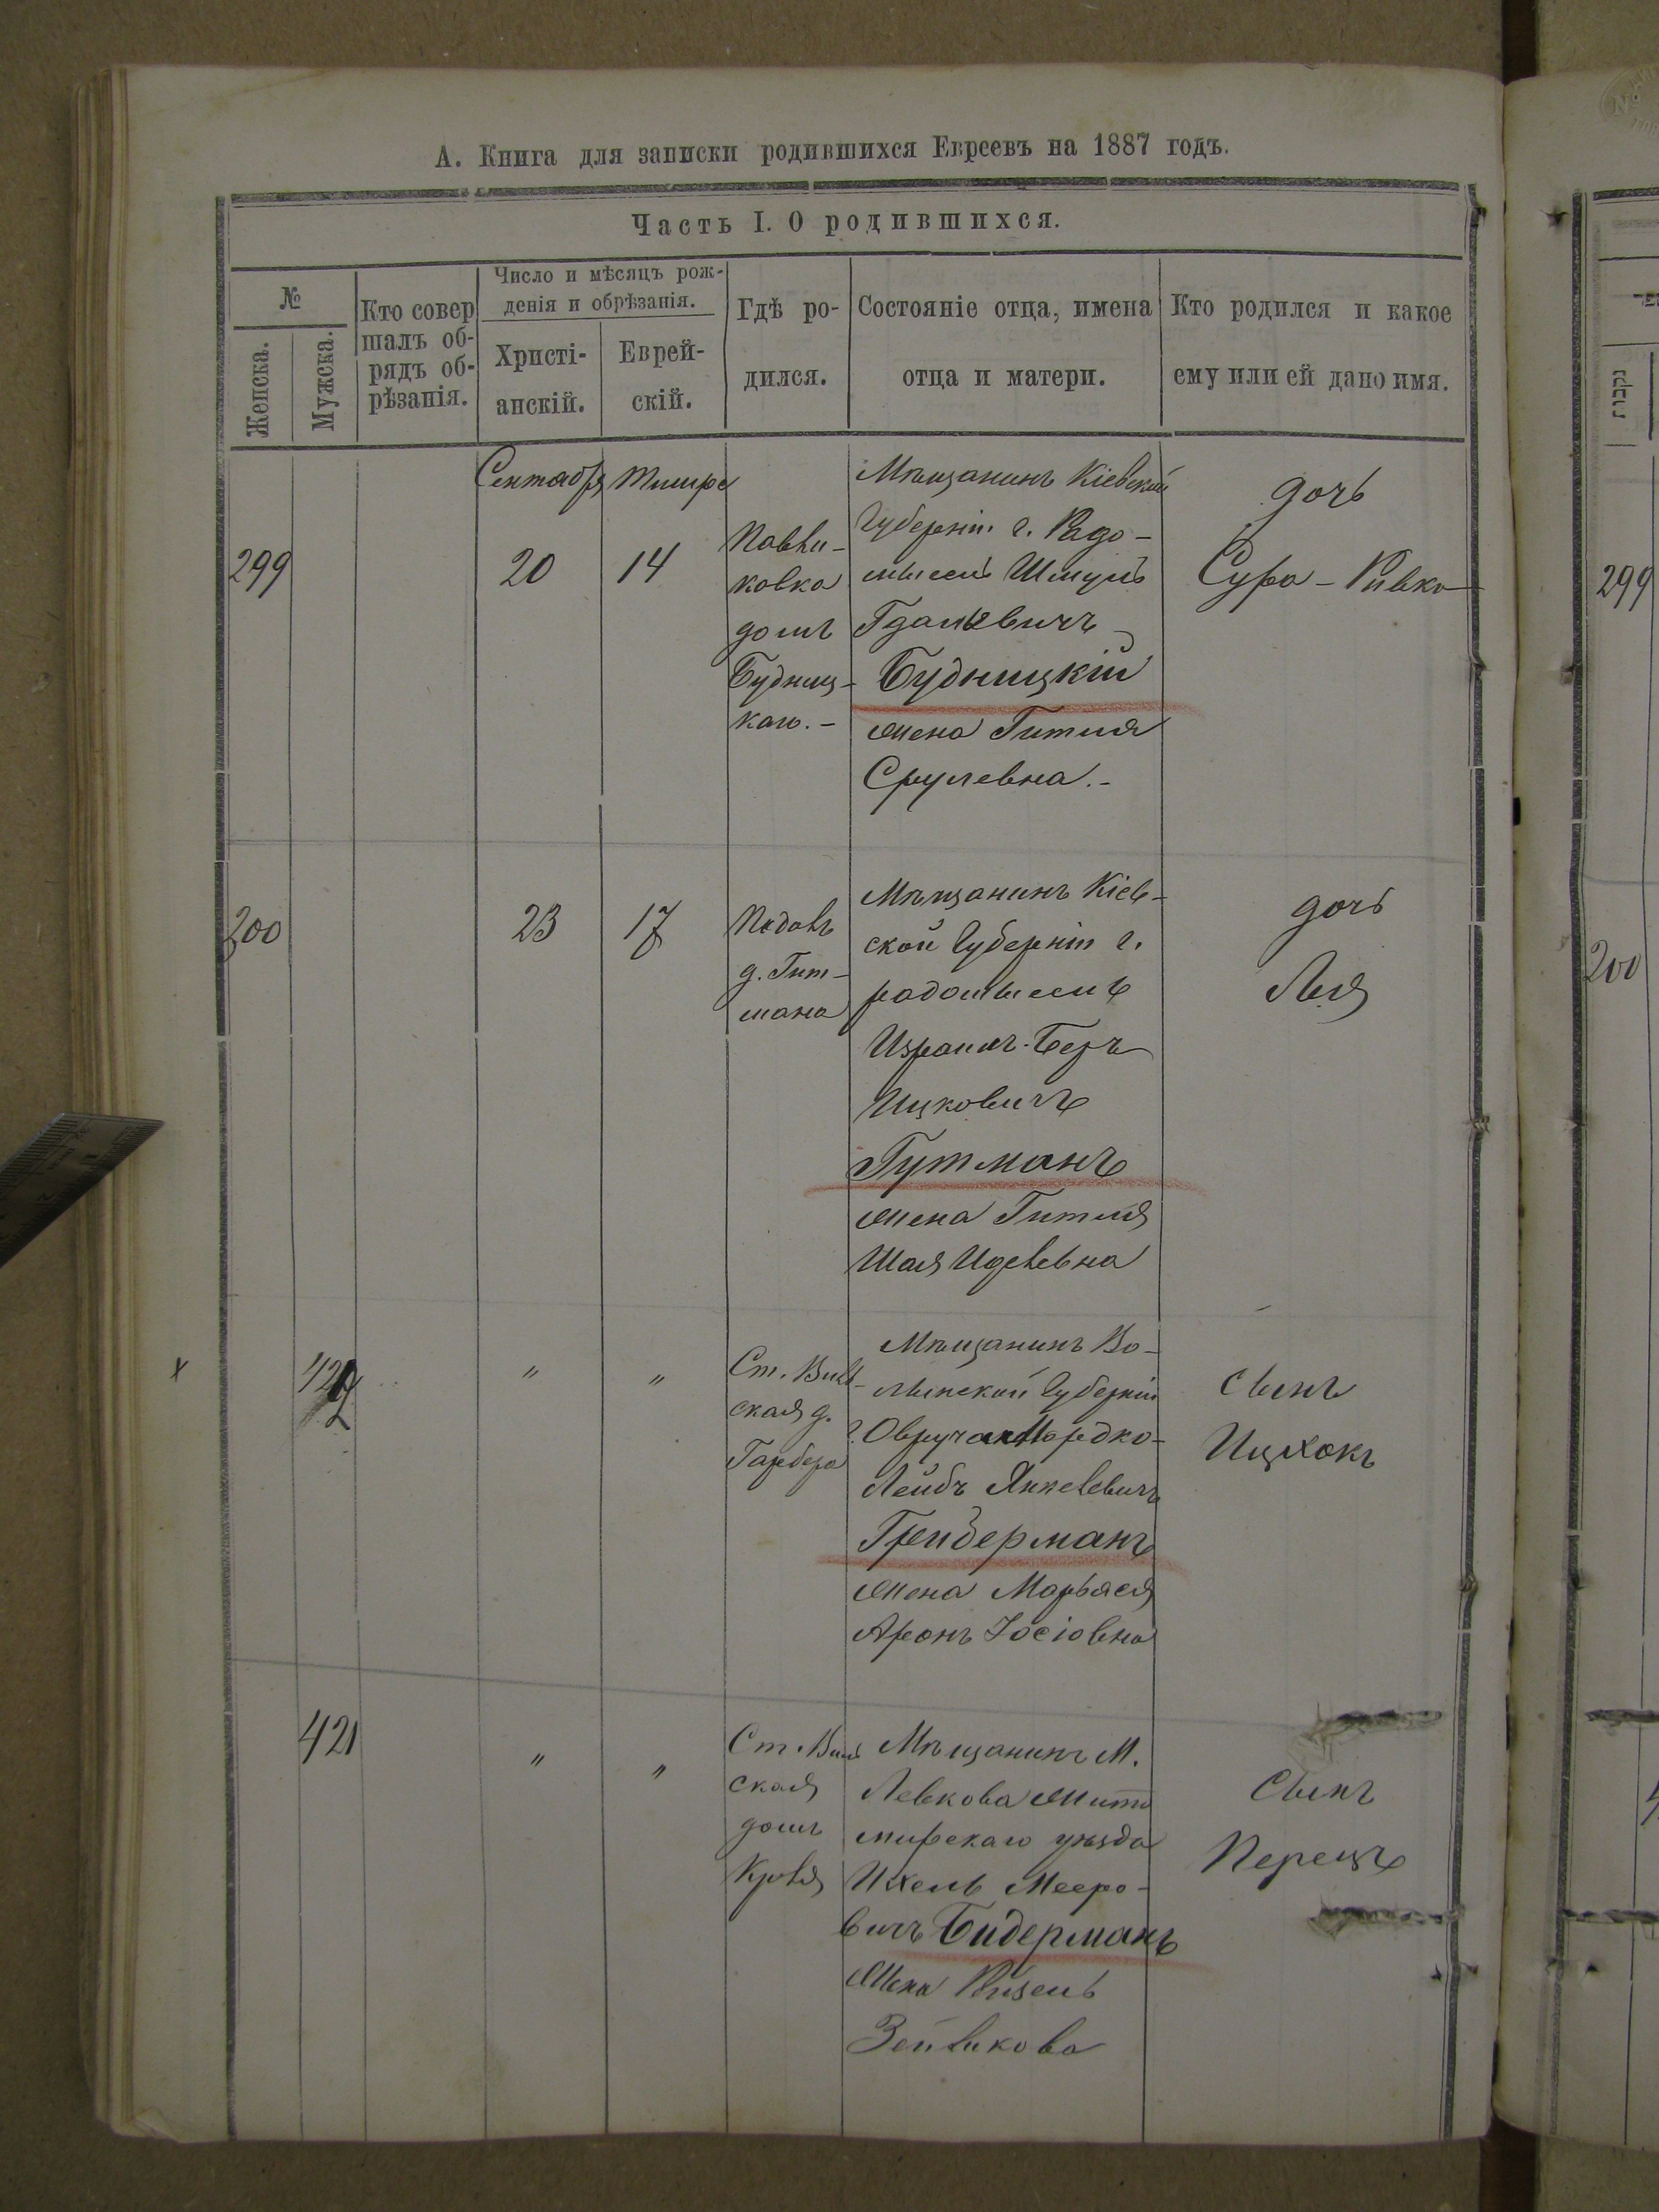 А. Книга для записки родившихся Евреевъ на 1887 годъ.
Часть I. О родившихся.
№
Женска.
Мужска.
Кто совер
шалъ об-
рядъ об-
рѣзанія.
Число и мѣсяцъ рож-
денія и обрѣзанія.
Христі-
анскій.
Еврей-
скій.
Гдѣ ро-
дился.
Состояніе отца, имена
отца и матери.
Кто родился и какое
ему или ей дано имя.
Сентабря
Тишре
299
20
14
ковка
домъ
Будниц-
каго.-
Мѣщанинъ Кіевской
Губерніи г. Радо-
мысль Шмуль
Гдалевичъ
Будницкій
жена Гитля
Срулевна.-
дочь
Сура-Ривка
299
300
23
17
Подолъ
д. Гит-
мана
Мѣщанинъ Кіев-
ской Губерніи г.
радомысль
Израиль-Беръ
Ицковичъ
Гутманъ
жена Гитля
Шая
дочь
Лея
"
"
Ст. Вил
ская д.
Гарбера
Мѣщанинъ Во-
лынской Губерніи
Мордко-
Лейбъ Янкелевичъ
Грейдерманъ
жена Марьяся
Аронъ Іосіовна
сынъ
Ицхокъ
421
"
"
Ст. Вил
ская
домъ
Мѣщанинъ М.
Левкова Жито
мирскаго уѣзда
Ихель Мееро-
вичъ Бидерманъ
жена Ризель
Зейликова
сынъ
Перецъ
נקבות